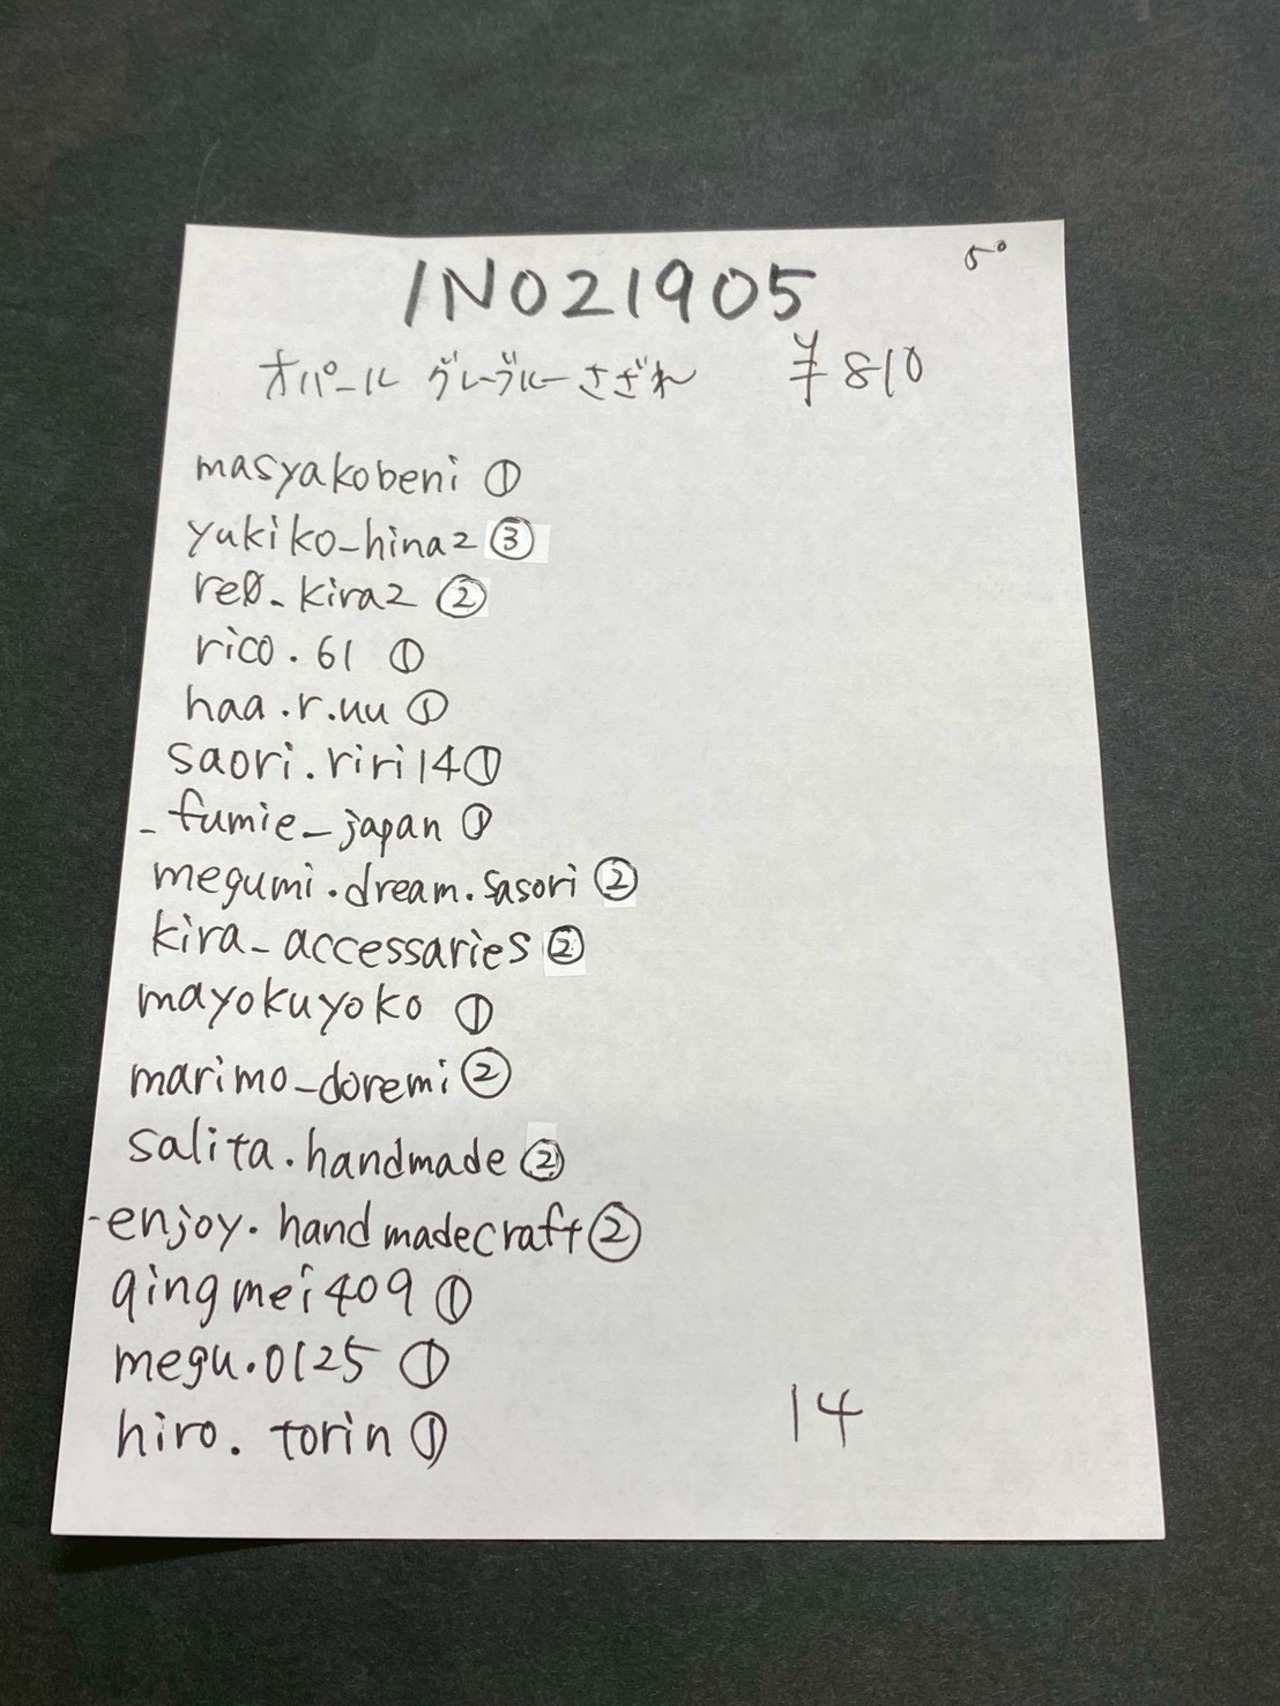 50
INO21905
オパール グレーブルーさざれ ¥810
masyakobeni ①
yukiko_hina2 ③
re0_kira2 ②
rico.61 ①
haa.r.uu ①
saori.riri14 ①
_fumie_japan ①
megumi.dream.sasori ②
kira_accessaries ②
mayokuyoko ①
marimo_doremi ②
salita.handmade ②
-enjoy.handmadecraft ②
qingmei409 ①
megu.0125 ①
hiro.torin ①
14